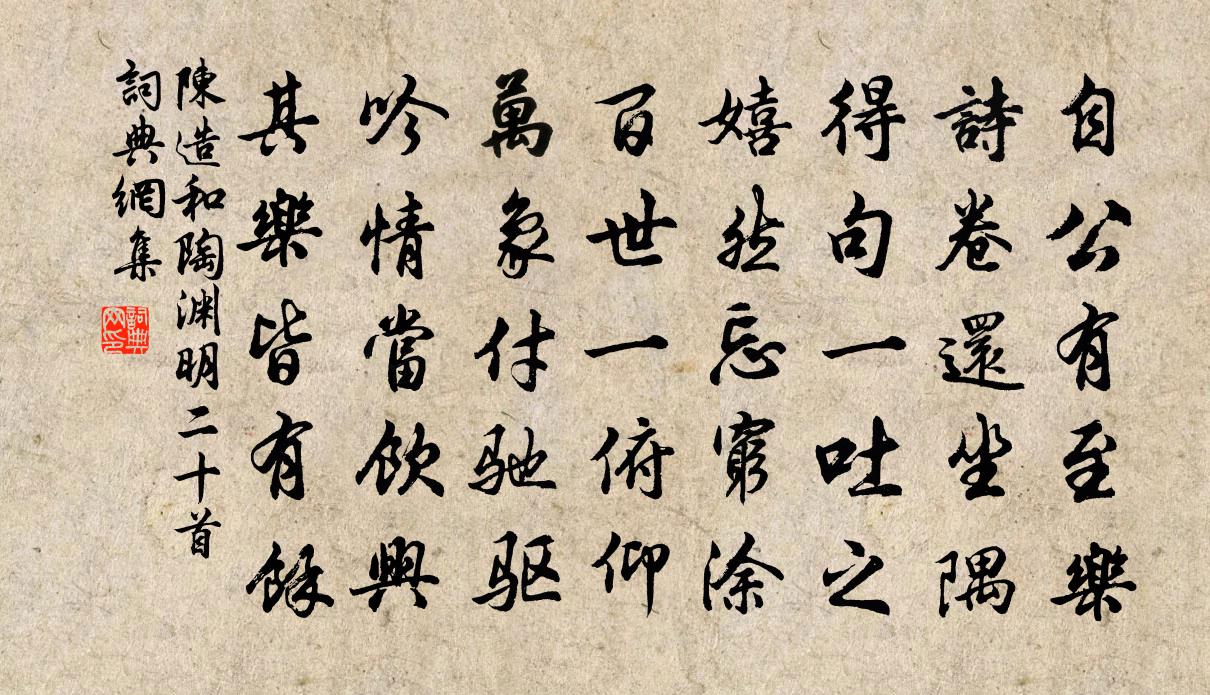 自公有至樂
詩卷還坐隅
得句一吐之
嬉然忘窮涂
百世一俯仰
萬象付馳驱
吟情當飲興
其樂皆有餘
陳造和陶淵明二十首
詞典網集
詞典网印